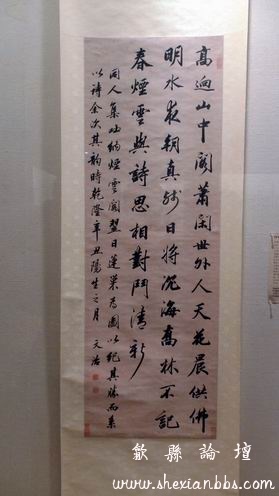 高迥山中閣蕭閑世外人天花晨供佛
明水夜朝真殘日將沉海喬林不記
春煙雲與詩思相對鬥清新
同人集山納煙雲閣翌日蓬巢為圖以紀其勝而系
以詩余次其韻時乾隆辛丑陽生之月 文治
歙縣論壇
www.shexianbbs.com